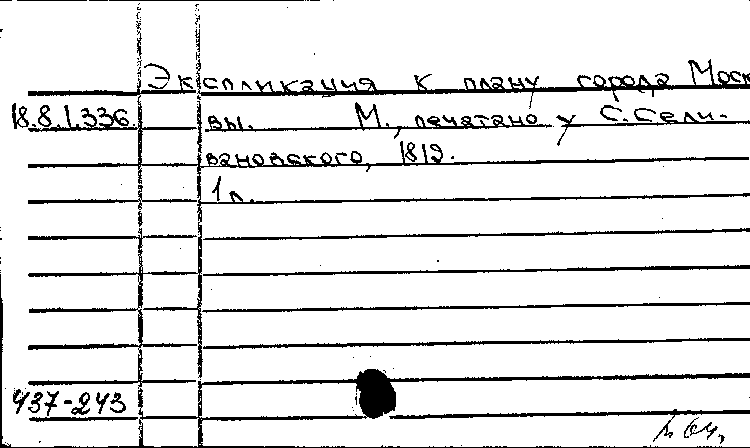 Экспликация к плану города Моск
18.8.1.336 вы. М., печатано у С. Сели-
вановского, 1819.
1 л.
437-243